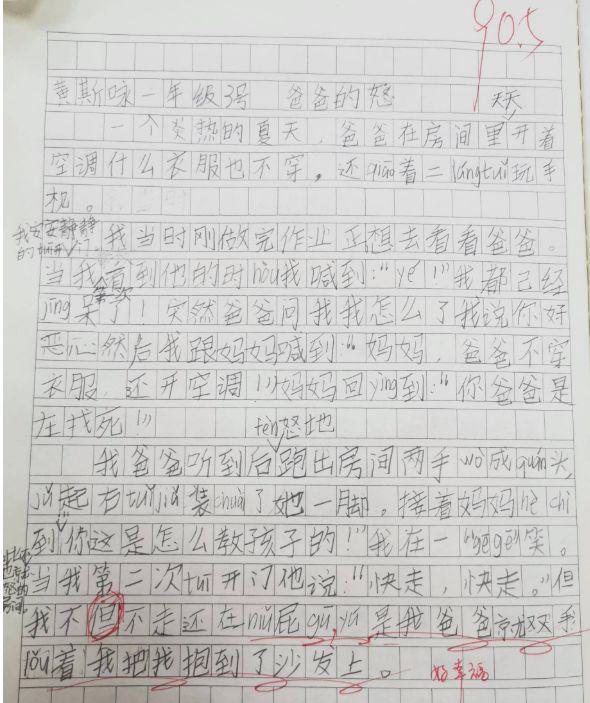 90.5
黄斯咏一年级3号 爸爸的怒
天天
一个炎热的夏天，爸爸在房间里开着
空调什么衣服也不穿，还qiāo着二lángtuǐ玩手
机。
我安安静静
的tuī开门
我当时刚做完作业正想去看看爸爸。
当我看到他的时hòu我喊到：“yé！”我都已经
第一次
jīng呆了！突然爸爸问我我怎么了我说你好
恶心然后我跟妈妈喊到：“妈妈，爸爸不穿
衣服，还开空调！”妈妈回yìng到：“你爸爸是
在找死！”
fèn怒地
我爸爸听到后跑出房间两手wò成quán头，
jǔ起右tuǐjiù chuài了她一脚。接着妈妈hè chì
到你这是怎么教孩子的！”我在一 gēgē笑。
当我第二次tuī开门他说：“快走，快走。”但
我不但不走还在niǔ屁gǔ，yú是我爸爸就双手
lǒu着我把我抱到了沙发上。
好幸福